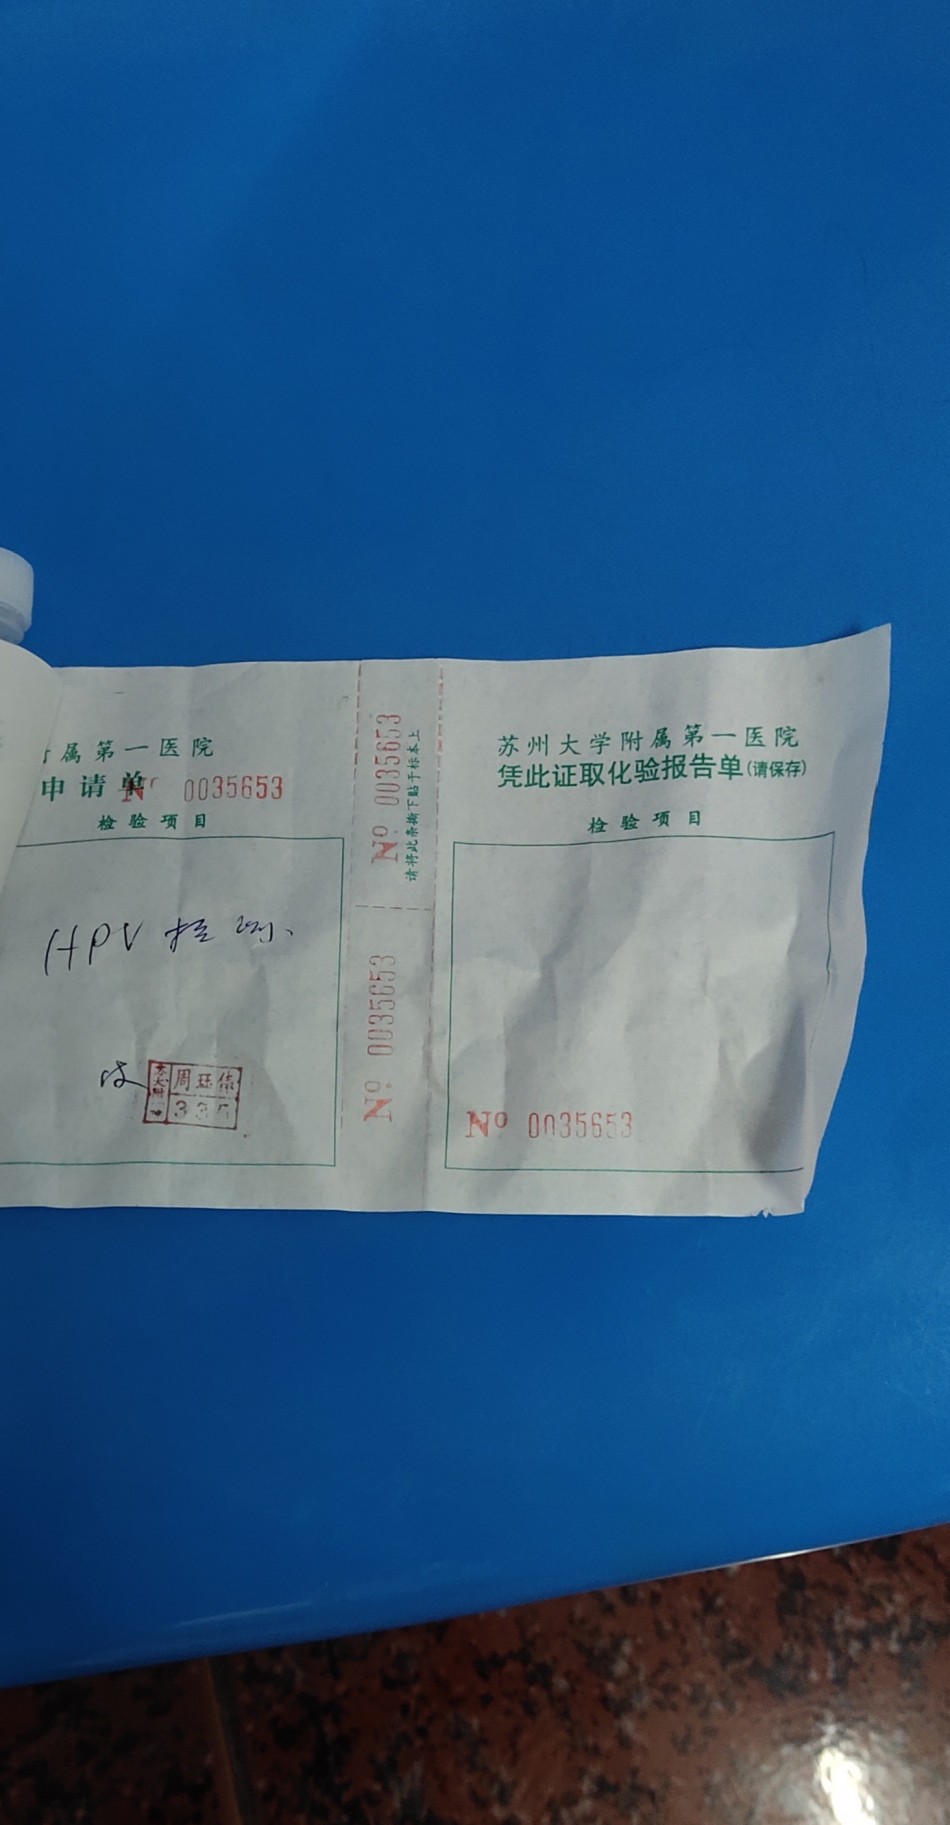 属第一医院
申请单 Nº 0035653
检验项目
HPV 检测
苏大附一
周珏伟
335
Nº 0035653
请将此条撕下贴于标本上
Nº 0035653
苏州大学附属第一医院
凭此证取化验报告单(请保存)
检验项目
Nº 0035653